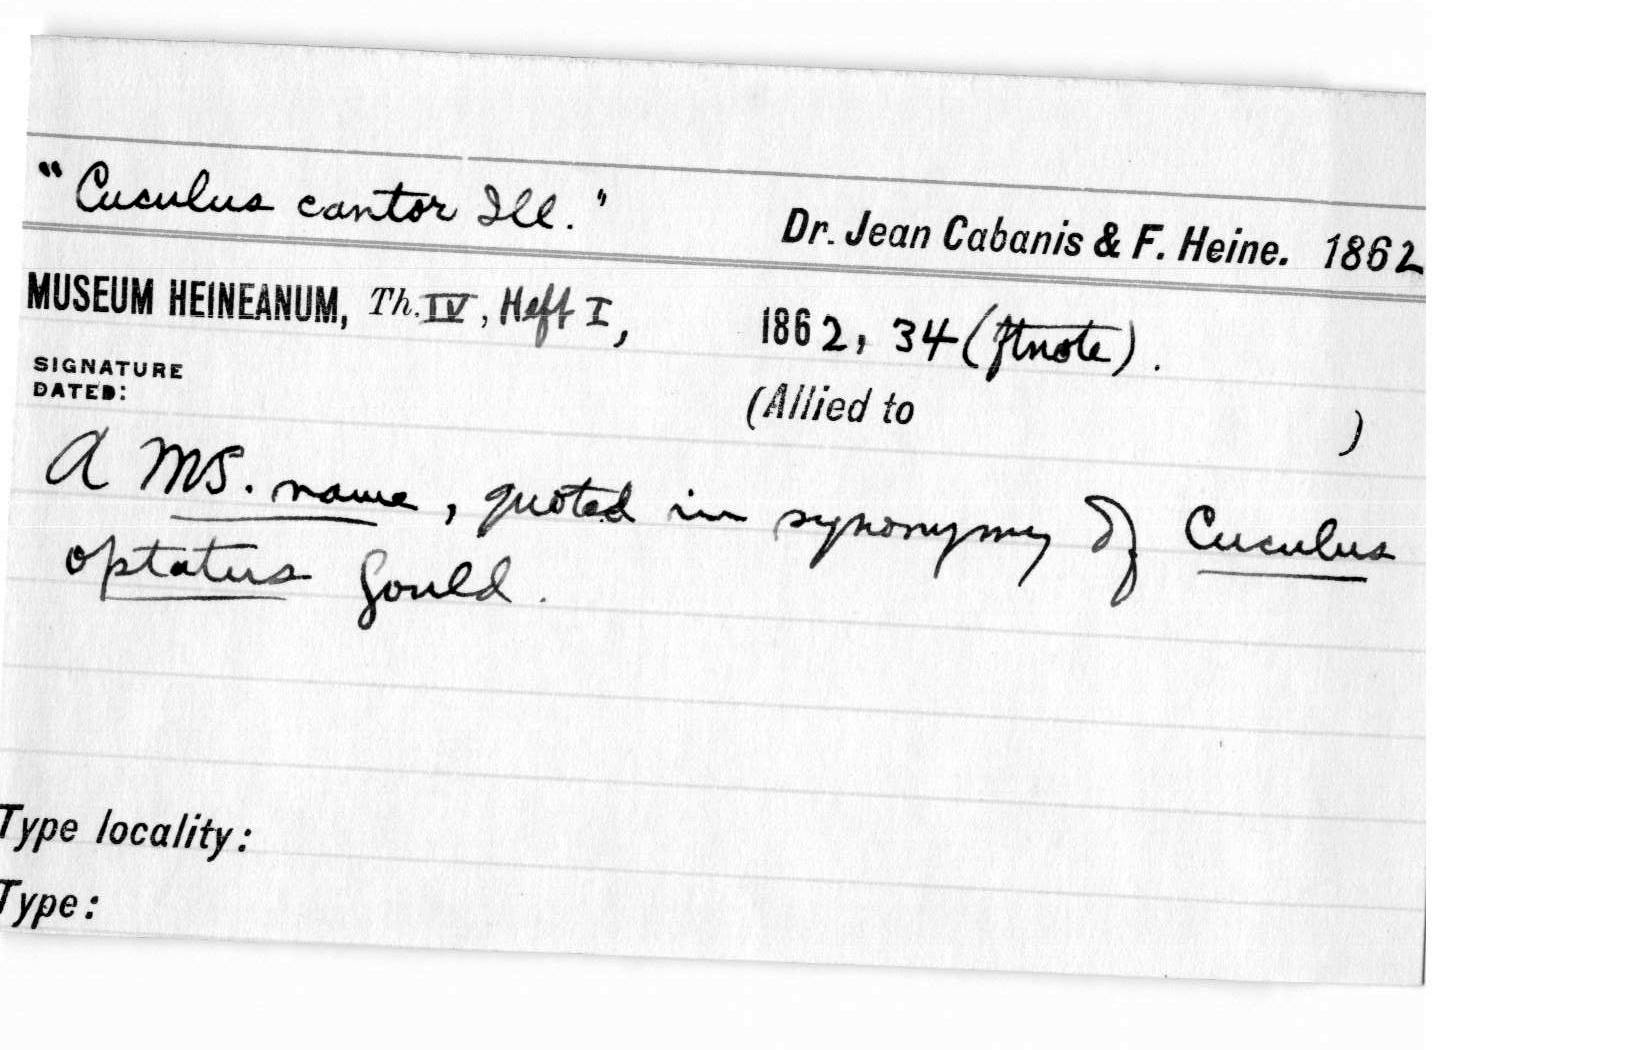 "Cuculus cantor Ill."
Dr. Jean Cabanis & F. Heine. 1862
MUSEUM HEINEANUM, Th. IV, Heft I, 1862, 34 (ftnote).
SIGNATURE
DATED:
(Allied to )
A MS. name, quoted in synonymy of Cuculus
optatus Gould.
Type locality:
Type: